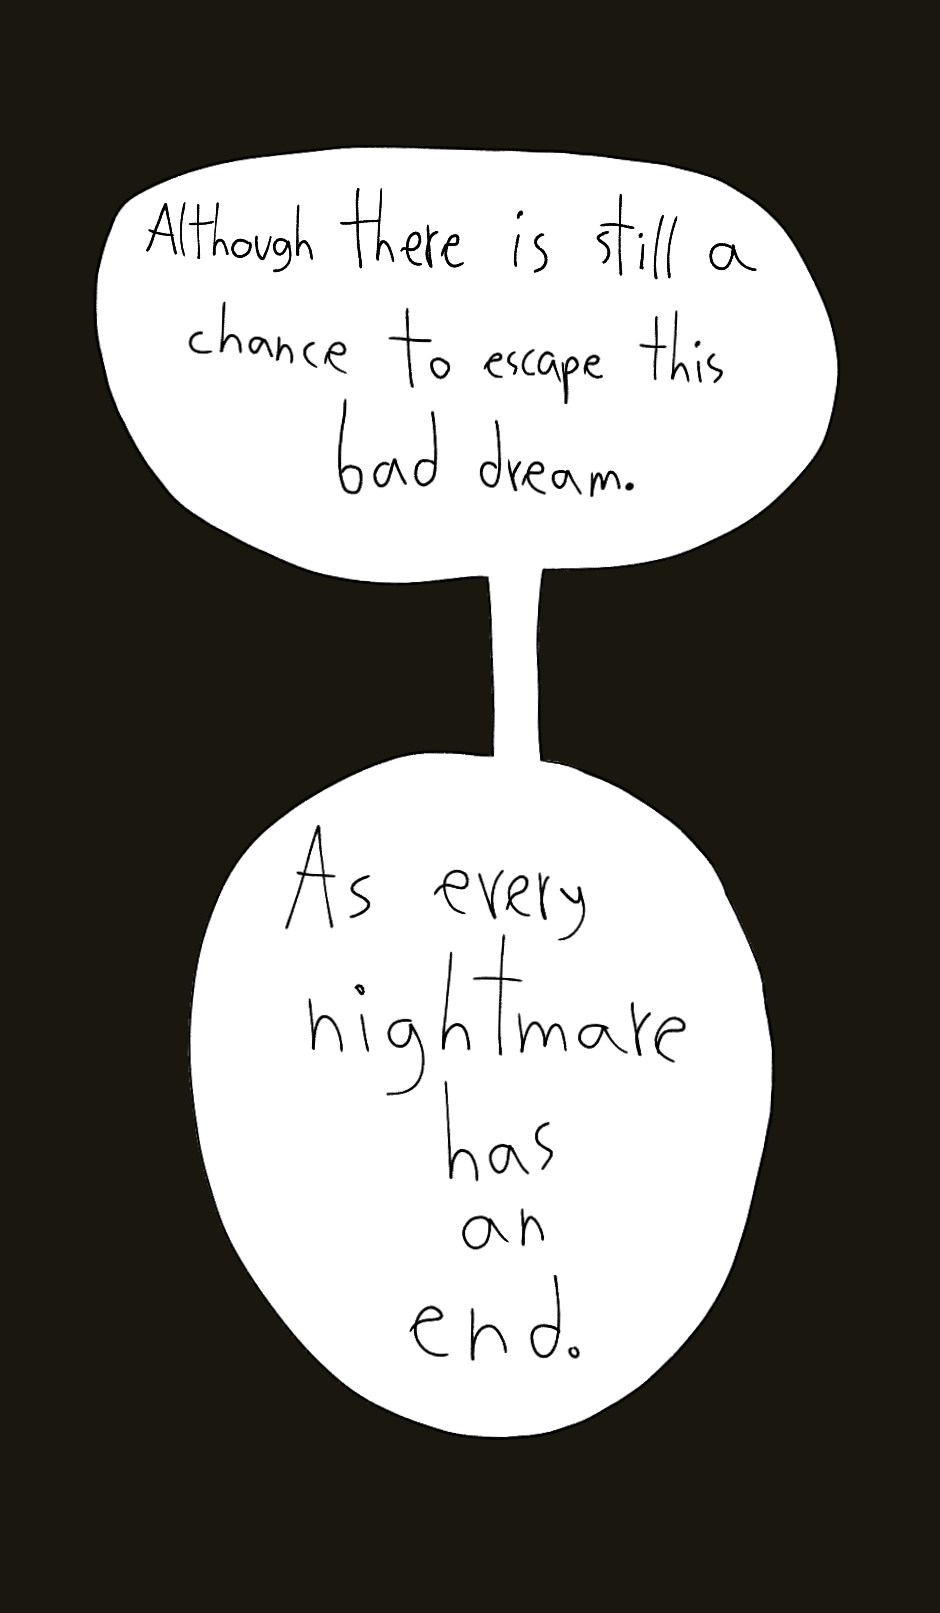 Although there is still a
chance to escape this
bad dream.
As every
nightmare
has
an
end.